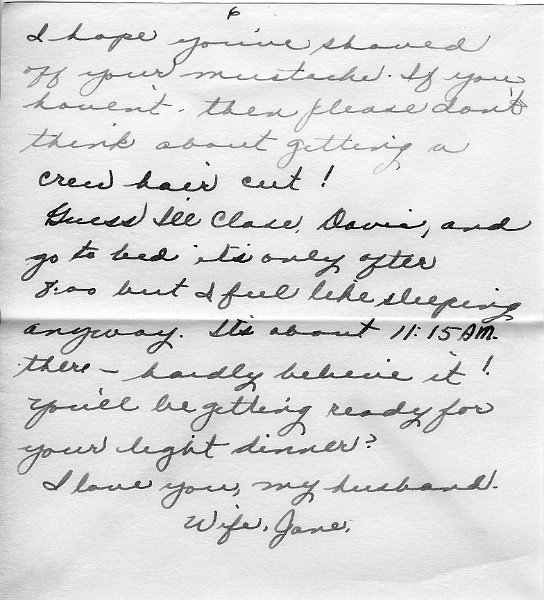 6
I hope you've shaved
off your mustache. If you
haven't - then please don't
think about getting a
crew hair cut!
Guess I'll close, Davis, and
go to bed it's only after
8:00 but I feel like sleeping
anyway. It's about 11:15 AM.
there - hardly believe it!
You'll be getting ready for
your light dinner?
I love you, my husband.
Wife, Jane.